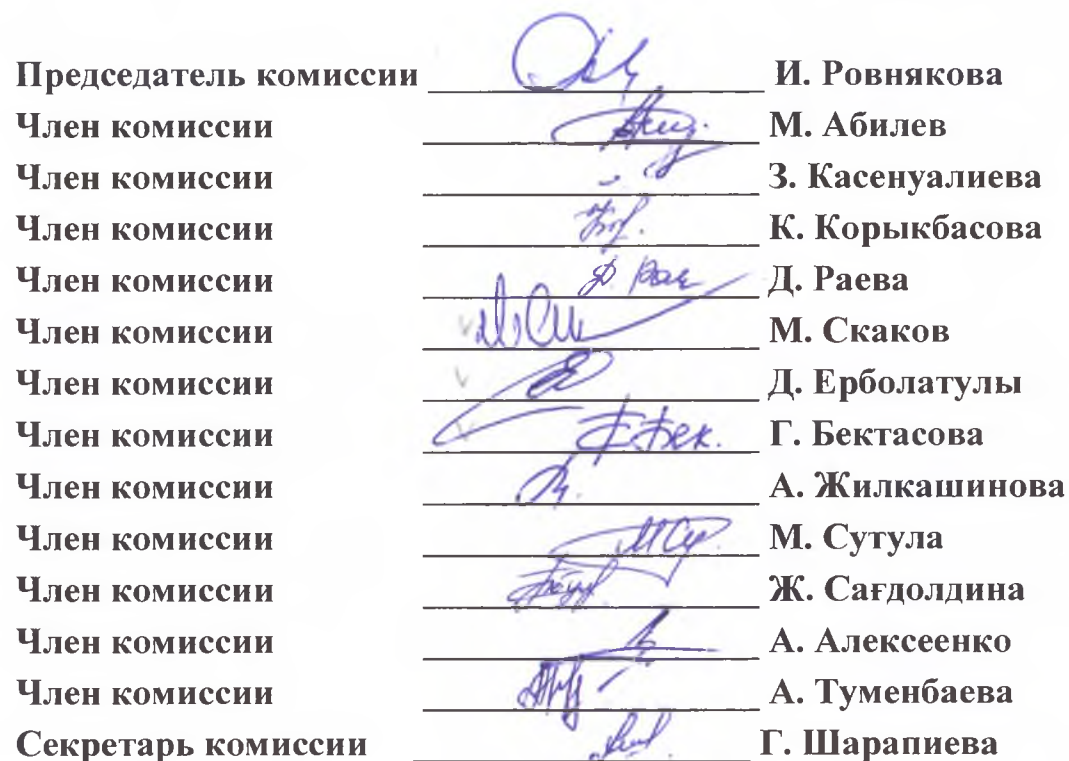 Председатель комиссии И. Ровнякова
Член комиссии М. Абилев
Член комиссии З. Касенуалиева
Член комиссии К. Корыкбасова
Член комиссии Д. Раева
Член комиссии М. Скаков
Член комиссии Д. Ерболатулы
Член комиссии Г. Бектасова
Член комиссии А. Жилкашинова
Член комиссии М. Сутула
Член комиссии Ж. Сағдолдина
Член комиссии А. Алексеенко
Член комиссии А. Туменбаева
Секретарь комиссии Г. Шарапиева